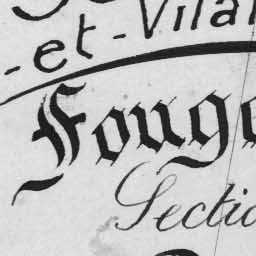 -et-Vilai
Fouge
Sectio